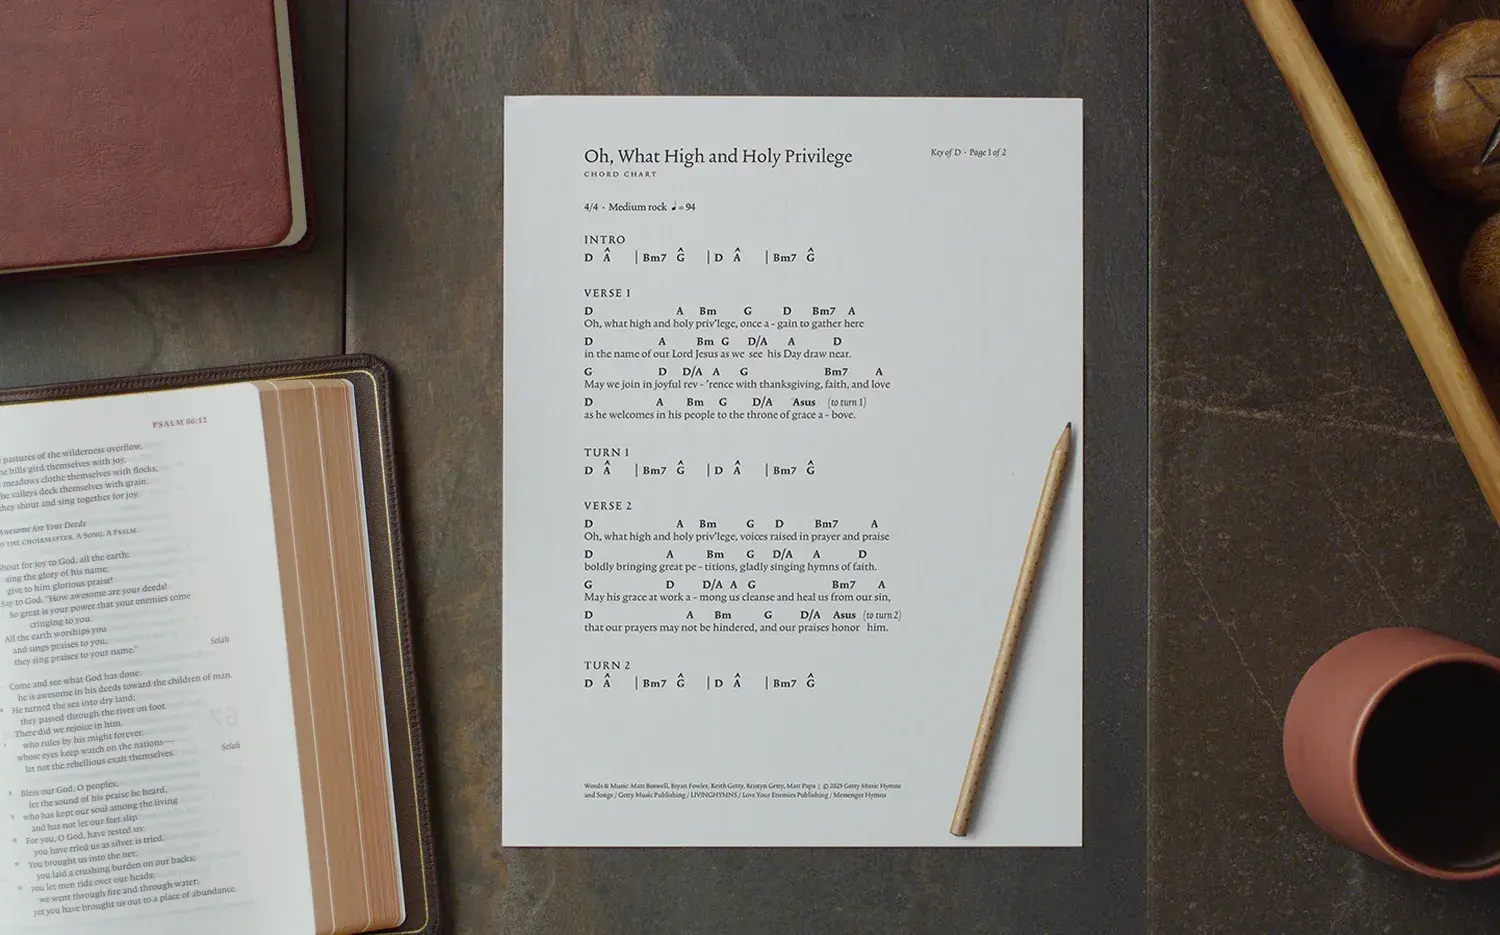 Oh, What High and Holy Privilege
CHORD CHART
Key of D · Page 1 of 2
4/4 · Medium rock ♩ = 94
INTRO
D Â | Bm7 Ĝ | D Â | Bm7 Ĝ
VERSE 1
D A Bm G D Bm7 A
Oh, what high and holy priv'lege, once a - gain to gather here
D A Bm G D/A A D
in the name of our Lord Jesus as we see his Day draw near.
G D D/A A G Bm7 A
May we join in joyful rev - 'rence with thanksgiving, faith, and love
D A Bm G D/A Asus (to turn 1)
as he welcomes in his people to the throne of grace a - bove.
TURN 1
D Â | Bm7 Ĝ | D Â | Bm7 Ĝ
VERSE 2
D A Bm G D Bm7 A
Oh, what high and holy priv'lege, voices raised in prayer and praise
D A Bm G D/A A D
boldly bringing great pe - titions, gladly singing hymns of faith.
G D D/A A G Bm7 A
May his grace at work a - mong us cleanse and heal us from our sin,
D A Bm G D/A Asus (to turn 2)
that our prayers may not be hindered, and our praises honor him.
TURN 2
D Â | Bm7 Ĝ | D Â | Bm7 Ĝ
Words & Music: Matt Boswell, Bryan Fowler, Keith Getty, Kristyn Getty, Matt Papa | © 2023 Getty Music Hymns
and Songs / Getty Music Publishing / LIVINGHYMNS / Love Your Enemies Publishing / Messenger Hymns
PSALM 66:12
pastures of the wilderness overflow,
hills gird themselves with joy,
meadows clothe themselves with flocks,
valleys deck themselves with grain,
they shout and sing together for joy.
Awesome Are Your Deeds
THE CHOIRMASTER. A SONG. A PSALM.
Shout for joy to God, all the earth;
sing the glory of his name;
give to him glorious praise!
Say to God, "How awesome are your deeds!
So great is your power that your enemies come
cringing to you.
All the earth worships you
and sings praises to you;
they sing praises to your name." Selah
Come and see what God has done:
he is awesome in his deeds toward the children of man.
He turned the sea into dry land;
they passed through the river on foot.
There did we rejoice in him,
who rules by his might forever,
whose eyes keep watch on the nations—
let not the rebellious exalt themselves. Selah
Bless our God, O peoples;
let the sound of his praise be heard,
who has kept our soul among the living
and has not let our feet slip.
For you, O God, have tested us;
you have tried us as silver is tried.
You brought us into the net;
you laid a crushing burden on our backs;
you let men ride over our heads;
we went through fire and through water;
yet you have brought us out to a place of abundance.